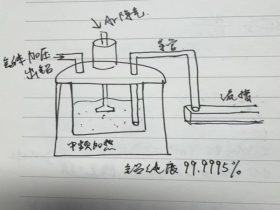 Ar除气
气体加压
出铝
主管
流槽
中频加热
主管纯度 99.9995%